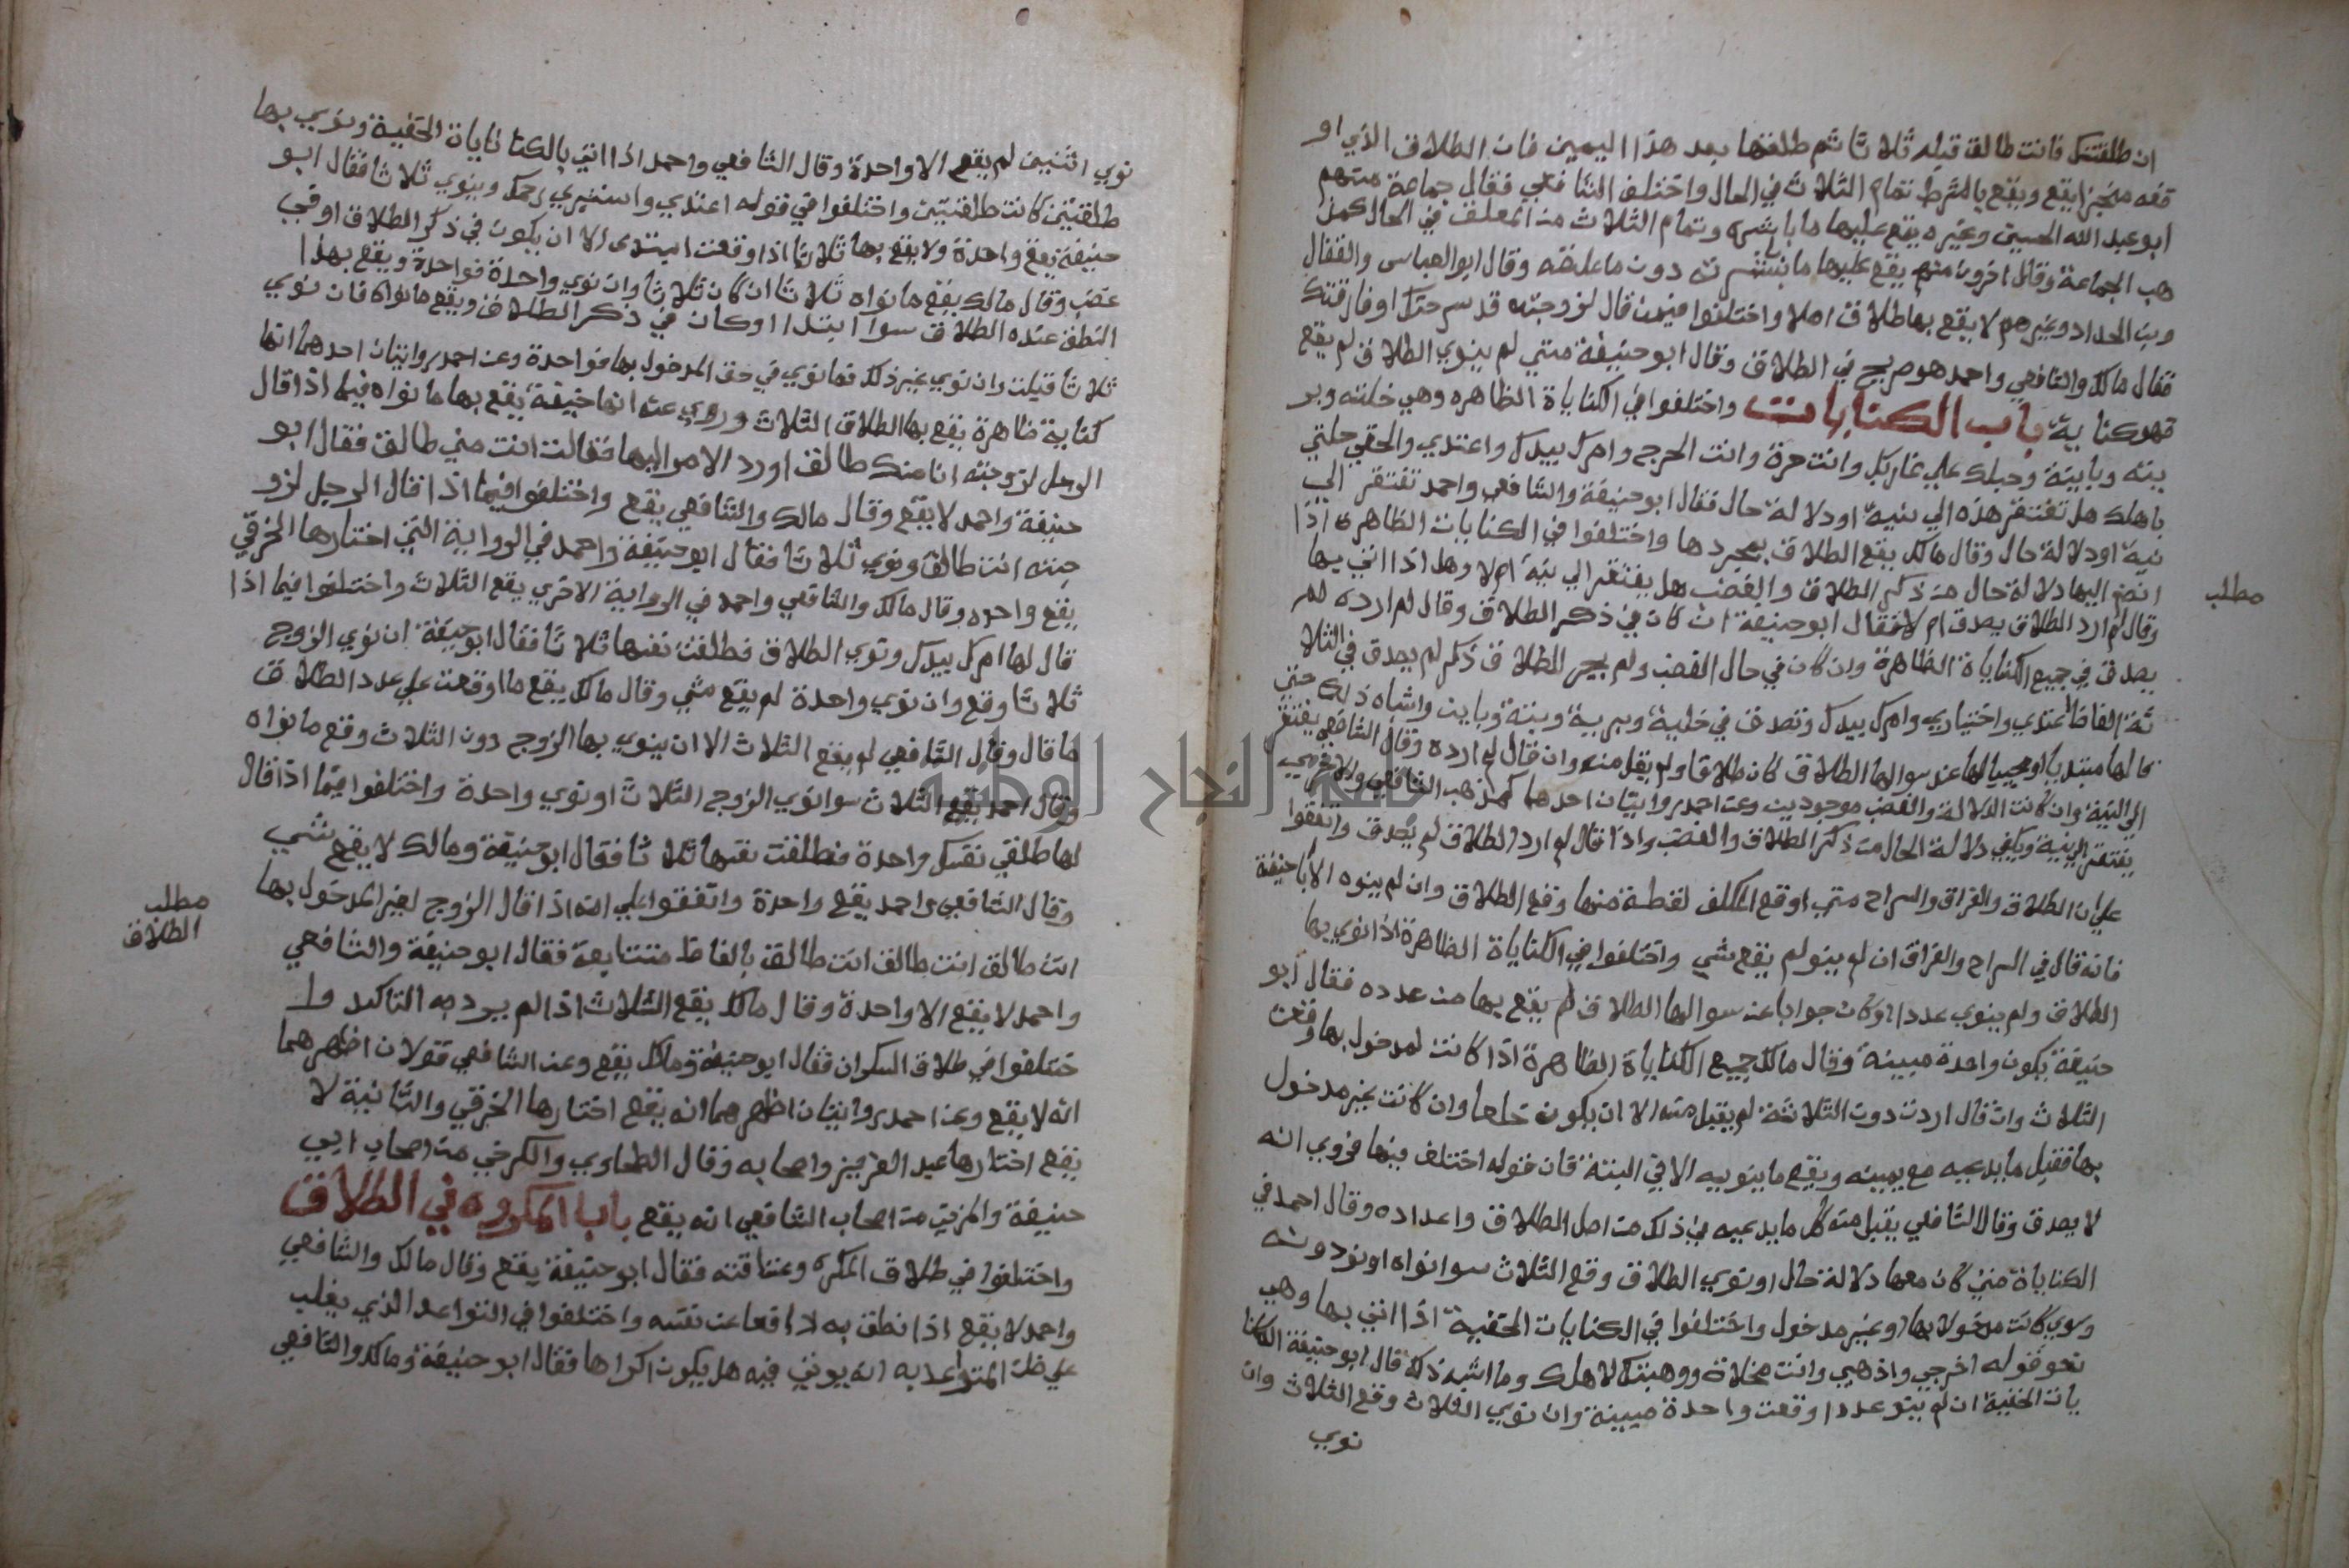 ان طلقتك فانت طالق قبله ثلاثا ثم طلقها بعد هذا اليمين فان الطلاق الذي او
قعه منجزا يقع ويقع بالشرط تمام الثلاث في الحال واختلف الشافعي فقال جماعة منهم
ابو عبد الله الحسين وغيره يقع عليها ما باشره وتمام الثلاث من المعلق في الحال كمذ
هب الجماعة وقال اخرون منهم يقع عليها ما باشره دون ما علقه وقال ابو العباس والقفال
وبن الحداد وغيرهم لا يقع بها طلاق اصلا واختلفوا فيمن قال لزوجته قد سرحتك او فارقتك
فقال مالك والشافعي واحمد هو صريح في الطلاق وقال ابو حنيفة متي لم ينوي الطلاق لم يقع
فهو كناية باب الكنايات واختلفوا في الكناياة الظاهره وهي خلته وبر
يته وباينة وحبلك علي غاربك وانت حرة وانت الحرج وامرك بيدك واعتدي والحقي حلتي
باهلك هل تفتقر هذه الي نية او دلالة حال فقال ابو حنيفة والشافعي واحمد تفتقر الي
نية او دلالة حال وقال مالك يقع الطلاق بمجردها واختلفوا في الكنايات الظاهره اذا
انضم اليها دلالة حال من ذكر الطلاق والغضب هل يفتقر الي نية ام لا وهل اذا اتي بها
وقال لم ارد الطلاق يصدق ام لا فقال ابو حنيفة ان كان في ذكر الطلاق وقال لم ارده لم
يصدق في جميع الكناياة الظاهرة وان كان في حال الغضب ولم يجر للطلاق ذكر لم يصدق في الثلا
ثة الفاظ اعتدي واختياري وامرك بيدك وتصدق في خلية وبرية وبتة وباين واشباه ذلك حتي
قالها مبتديا او مجيبا لها عند سوالها الطلاق كان طلاقا ولم يقبل منه وان قال لم ارده وقال الشافعي يفتقر
الي النية وان كانت الدلالة والغضب موجودين وعن احمد روايتان احدهما كمذهب الشافعي والاخري
يفتقر الي نية ويكفي دلالة الحال من ذكر الطلاق والغضب واذا قال لم ارد الطلاق لم يصدق واتفقوا
علي ان الطلاق والفراق والسراح متي اوقع المكلف لفظة منها وقع الطلاق وان لم ينوه الا ابا حنيفة
فانه قال في السراح والفراق ان لم ينو لم يقع شي واختلفوا في الكناياة الظاهرة اذا نوي بها
الطلاق ولم ينوي عددا وكان جوابا عن سوالها الطلاق لم يقع بها من عدده فقال ابو
حنيفة يكون واحدة مبينة وقال مالك جميع الكناياة الظاهرة اذا كانت لمدخول بها وقعت
الثلاث وان قال اردت دون الثلاثة لم يقبل منه الا ان يكون خلعا وان كانت غير مدخول
بها فقبل ما يدعيه مع يمينه ويقع ما ينويه الا في البتة فان قوله اختلف فيها فروي انه
لا يصدق وقال الشافعي يقبل منه كل ما يدعيه في ذلك من اصل الطلاق واعداده وقال احمد في
الكناياة متي كان معها دلالة حال او نوي الطلاق وقع الثلاث سوا نواه او نو دونه
وسوي كانت مدخولا بها او غير مدخول واختلفوا في الكنايات الخفية اذا اتي بها وهي
نحو قوله اخرجي واذهبي وانت مخلاة ووهبتك لاهلك وما اشبه ذلك قال ابو حنيفة الكنا
يات الخفية ان لم ينو عددا وقعت واحدة مبينة وان نوي الثلاث وقع الثلاث وان
نوي
مطلب
نوي اثنين لم يقع الا واحدة وقال الشافعي واحمد اذا اتي بالكنايات الخفية ونوي بها
طلقتين كانت طلقتين واختلفوا في قوله اعتدي واستبري رحمك وينوي ثلاثا فقال ابو
حنيفة يقع واحدة ولا يقع بها ثلاثا اذا وقعت ابتدي الا ان يكون في ذكر الطلاق او في
غضب وقال مالك يقع ما نواه ثلاثا ان كان ثلاثا وان نوي واحدة فواحدة ويقع بهذا
النطق عنده الطلاق سوا ابتدا او كان في ذكر الطلاق ويقع ما نواه فان نوي
ثلاثا قبلت وان نوي غير ذلك فما نوي في حق المدخول بها فواحدة وعن احمد روايتان احدهما انها
كناية ظاهرة يقع بها الطلاق الثلاث وروي عنه انها خفيفة يقع بها ما نواه فيما اذا قال
الرجل لزوجته انا منك طالق او رد الامر اليها فقالت انت مني طالق فقال ابو
حنيفة واحمد لا يقع وقال مالك والشافعي يقع واختلفوا فيما اذا قال الرجل لزو
جته انت طالق ونوي ثلاثا فقال ابو حنيفة واحمد في الرواية التي اختارها الخرقي
يقع واحده وقال مالك والشافعي واحمد في الرواية الاخري يقع الثلاث واختلفوا فيما اذا
قال لها امرك بيدك ونوي الطلاق فطلقت نفسها ثلاثا فقال ابو حنيفة ان نوي الزوج
ثلاثا وقع وان نوي واحدة لم يقع شي وقال مالك يقع ما اوقعت علي عدد الطلاق
ما قال وقال الشافعي لم يقع الثلاث الا ان ينوي بها الزوج دون الثلاث وقع ما نواه
وقال احمد يقع الثلاث سوا نوي الزوج الثلاث او نوي واحدة واختلفوا فيما اذا قال
لها طلقي نفسك واحدة فطلقت نفسها ثلاثا فقال ابو حنيفة ومالك لا يقع شي
وقال الشافعي واحمد يقع واحدة واتفقوا علي انه اذا قال الزوج لغير المدخول بها
انت طالق انت طالق انت طالق بالفاظ متتابعة فقال ابو حنيفة والشافعي
واحمد لا يقع الا واحدة وقال مالك يقع الثلاث اذا لم يرد به التاكيد وا
ختلفوا في طلاق السكران فقال ابو حنيفة ومالك يقع وعن الشافعي قولان اظهرهما
انه لا يقع وعن احمد روايتان اظهرهما انه يقع اختارها الخرقي والثانية لا
يقع اختارها عبد العزيز واصحابه وقال الطحاوي والكرخي من اصحاب ابي
حنيفة والمزني من اصحاب الشافعي انه يقع باب المكروه في الطلاق
واختلفوا في طلاق المكره وعتاقته فقال ابو حنيفة يقع وقال مالك والشافعي
واحمد لا يقع اذا نطق به لا دافعا عن نفسه واختلفوا في التواعد الذي يغلب
علي ظن المتواعد به انه يوتي فيه هل يكون اكراها فقال ابو حنيفة ومالك والشافعي
مطلب
الطلاق
جامعة النجاح الوطنية